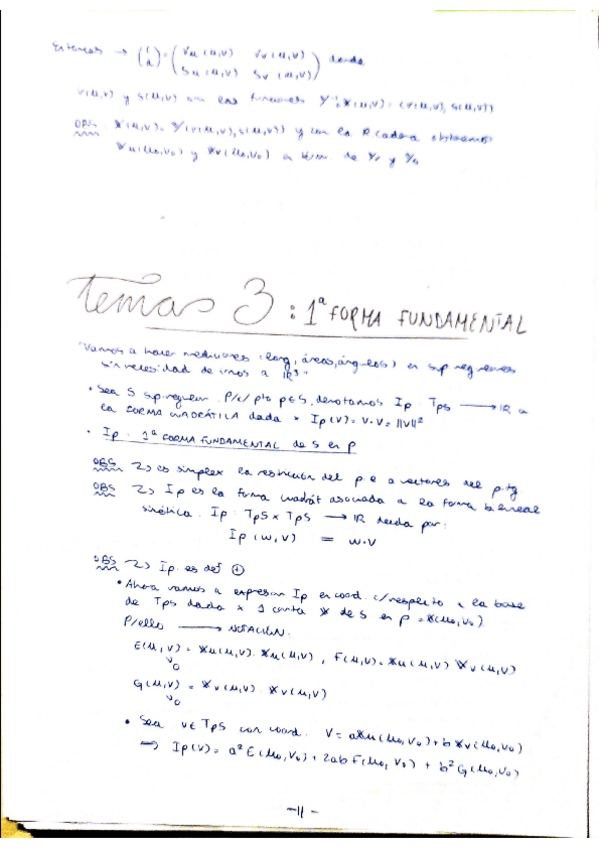 Entonces → ( ) = ( Vu (u,v) Vv (u,v)
Su (u,v) Sv (u,v) ) donde
v(u,v) y s(u,v) son las funciones Y⁻¹∘X(u,v) = (v(u,v), s(u,v))
OBS X(u,v) = Y(v(u,v), s(u,v)) y con la R cadena obtenemos
Xu(u₀,v₀) y Xv(u₀,v₀) a de y
temas 3 : 1ª FORMA FUNDAMENTAL
"Vamos a hacer mediciones (long, áreas, ángulos) en sup regulares
sin necesidad de irnos a ℝ³"
• Sea S sup. regular. P/c/ pto p∈S, denotamos Ip: TpS → ℝ a
la FORMA CUADRÁTICA dada x Ip(v) = v·v = ||v||²
• Ip: 1ª FORMA FUNDAMENTAL de S en p
OBS 2) es simplex la restricción del p.e a vectores del p.tg
OBS 2) Ip es la forma cuadrát asociada a la forma bilineal
simétrica. Ip: TpS × TpS → ℝ dada por:
Ip (w,v) = w·v
OBS 2) Ip es def ⊕
• Ahora vamos a expresar Ip en coord. c/respecto a la base
de TpS dada x 1 carta X de S en p = X(u₀,v₀)
P/ello → NOTACIÓN.
E(u,v) = Xu(u,v)·Xu(u,v), F(u,v) = Xu(u,v) Xv(u,v)
v₀
G(u,v) = Xv(u,v)·Xv(u,v)
v₀
• Sea v∈TpS con coord. V = aXu(u₀,v₀)+bXv(u₀,v₀)
⇒ Ip(v) = a²E(u₀,v₀) + 2abF(u₀,v₀) + b²G(u₀,v₀)
-11-